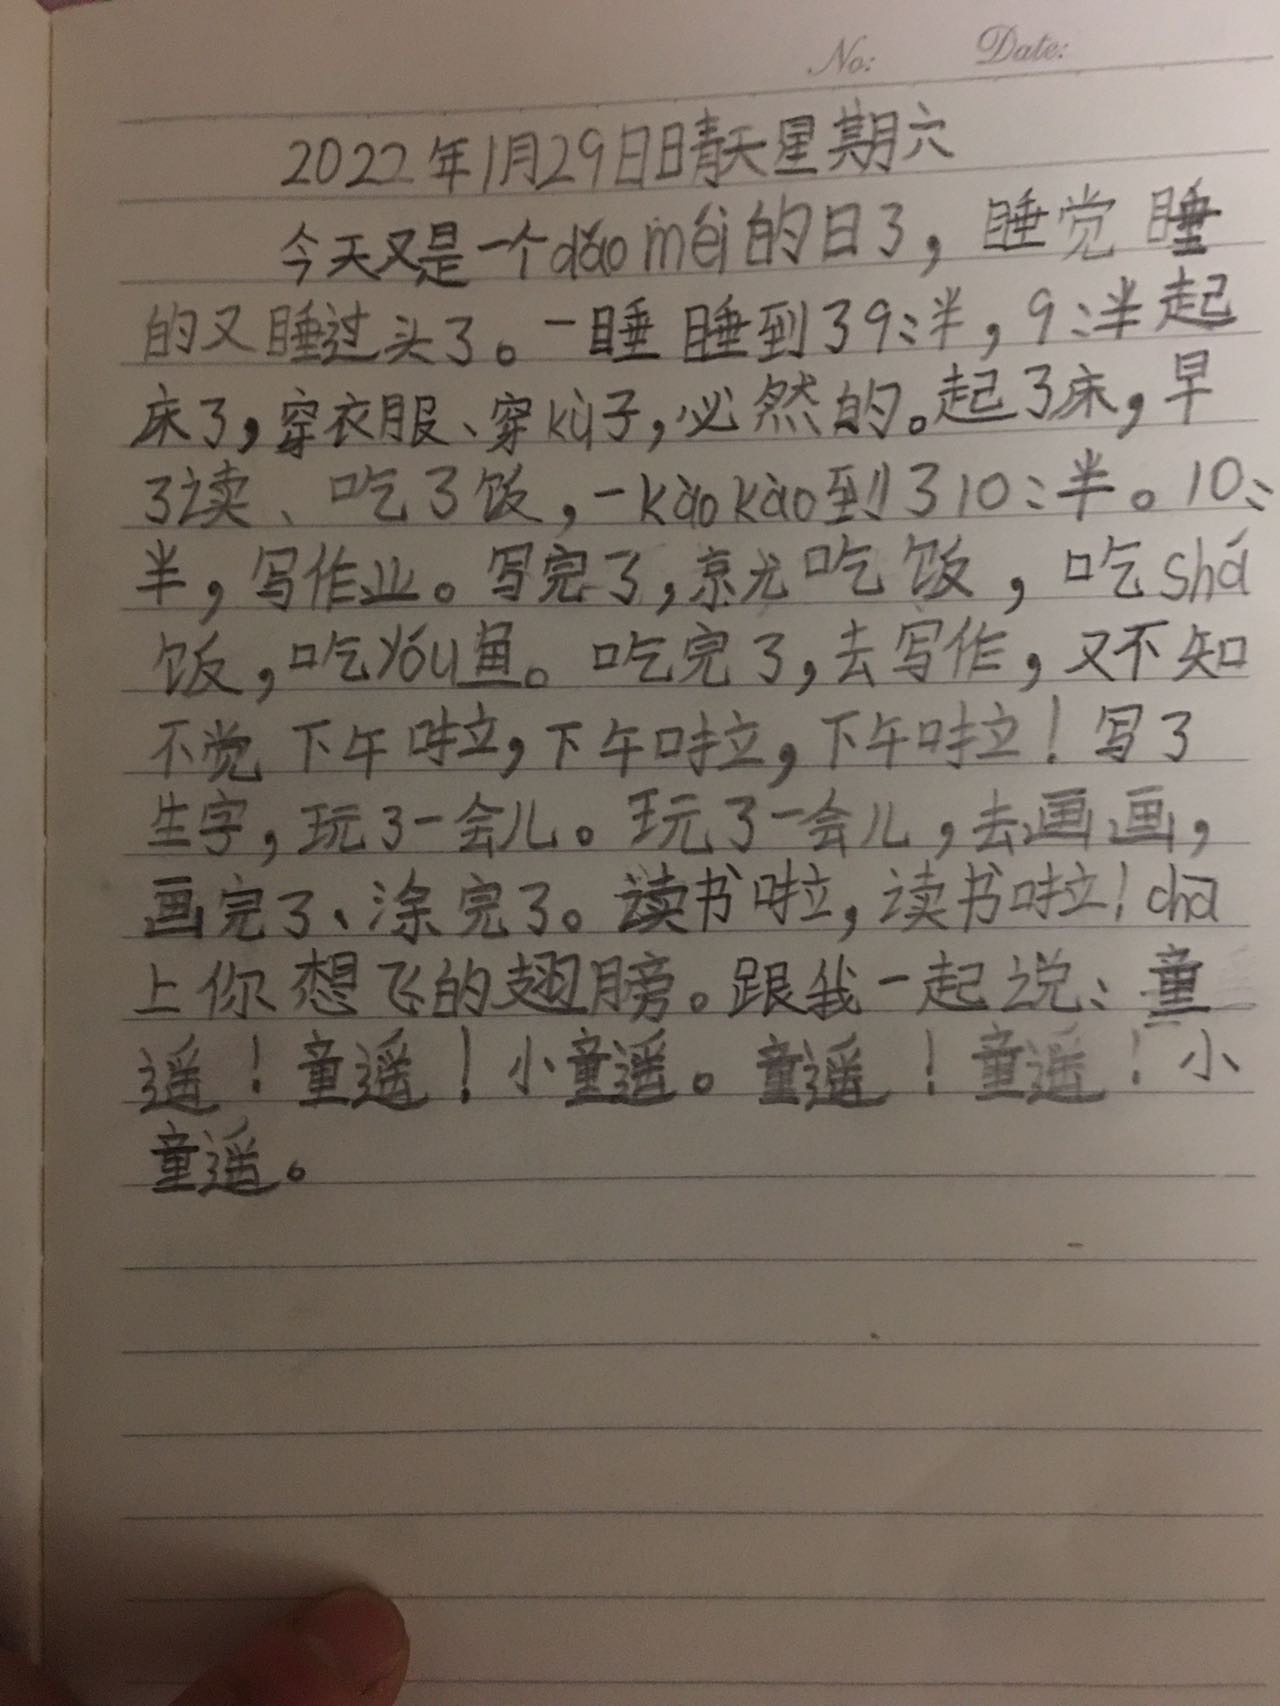 No:    Date:
2022年1月29日晴天星期六
今天又是一个dǎo méi的日了，睡觉睡
的又睡过头了。一睡睡到了9:半，9:半起
床了，穿衣服、穿kù子，必然的。起了床，早
了读、吃了饭，一kào kào到了10:半。10:
半，写作业。写完了，京尤吃饭，吃shá
饭，吃yóu鱼。吃完了，去写作，又不知
不觉下午啦，下午啦，下午啦！写了
生字，玩了一会儿。玩了一会儿，去画画，
画完了、涂完了。读书啦，读书啦！chā
上你想飞的翅膀。跟我一起说：童
遥！童遥！小童遥。童遥！童遥！小
童遥。